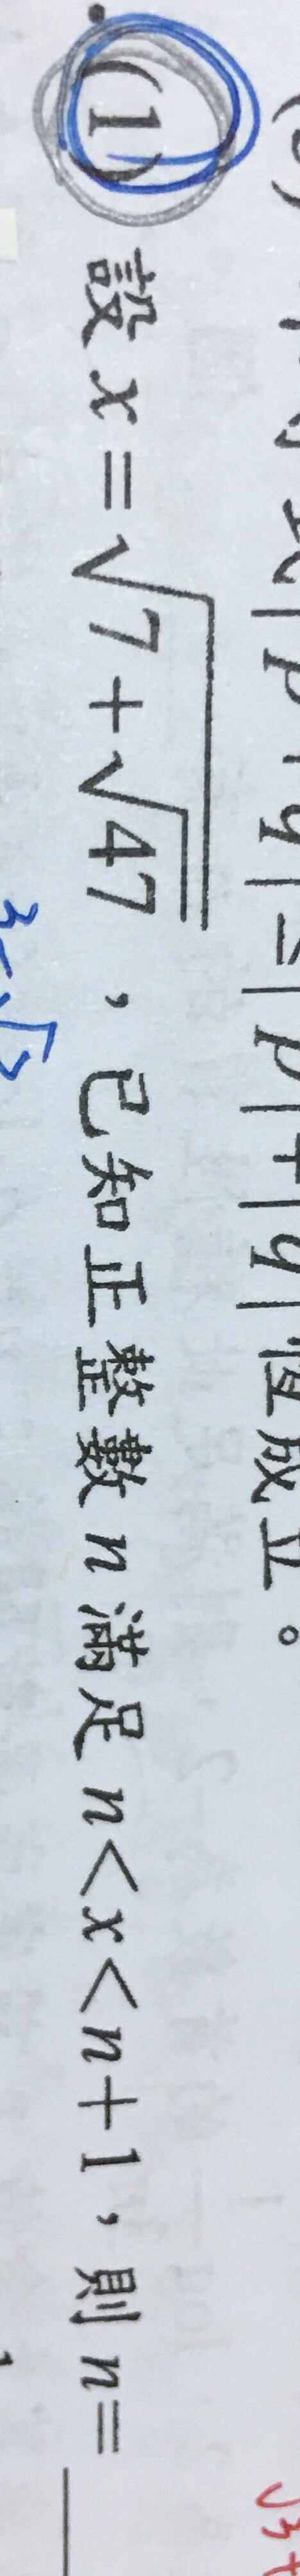 |p+q|≤|p|+|q|恆成立。
(1) 設 x=√(7+√47)，已知正整數 n 滿足 n<x<n+1，則 n=